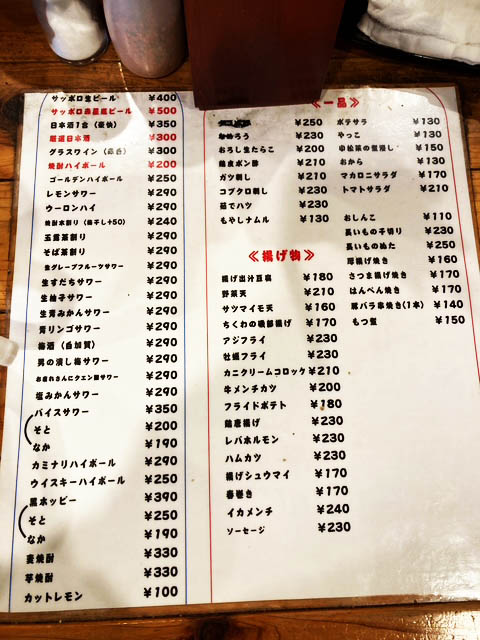 サッポロ生ビール ¥400
サッポロ赤星瓶ビール ¥500
日本酒1合(豪快) ¥350
厳選日本酒 ¥300
グラスワイン(赤白) ¥300
焼酎ハイボール ¥200
ゴールデンハイボール ¥250
レモンサワー ¥290
ウーロンハイ ¥290
焼酎水割り(梅干し+50) ¥240
玉露茶割り ¥290
そば茶割り ¥290
生グレープフルーツサワー ¥290
生すだちサワー ¥290
生柚子サワー ¥290
生青みかんサワー ¥290
青リンゴサワー ¥290
梅酒(白加賀) ¥290
男の潰し梅サワー ¥290
お疲れさんにクエン酸サワー ¥290
塩みかんサワー ¥290
バイスサワー ¥350
そと ¥200
なか ¥190
カミナリハイボール ¥290
ウイスキーハイボール ¥250
黒ホッピー ¥390
そと ¥250
なか ¥190
麦焼酎 ¥330
芋焼酎 ¥330
カットレモン ¥100
≪一品≫
¥250
なめろう ¥230
おろし生たらこ ¥200
鶏皮ポン酢 ¥210
ガツ刺し ¥210
コブクロ刺し ¥230
茹でハツ ¥230
もやしナムル ¥130
ポテサラ ¥130
やっこ ¥130
小松菜の煮浸し ¥150
おから ¥130
マカロニサラダ ¥170
トマトサラダ ¥210
おしんこ ¥110
長いもの千切り ¥230
長いものぬた ¥250
厚揚げ焼き ¥160
さつま揚げ焼き ¥170
はんぺん焼き ¥170
豚バラ串焼き(1本) ¥140
もつ煮 ¥150
≪揚げ物≫
揚げ出汁豆腐 ¥180
野菜天 ¥210
サツマイモ天 ¥160
ちくわの磯部揚げ ¥170
アジフライ ¥230
牡蠣フライ ¥230
カニクリームコロッケ ¥210
牛メンチカツ ¥200
フライドポテト ¥180
鶏唐揚げ ¥230
レバホルモン ¥230
ハムカツ ¥230
揚げシュウマイ ¥170
春巻き ¥170
イカメンチ ¥240
ソーセージ ¥230